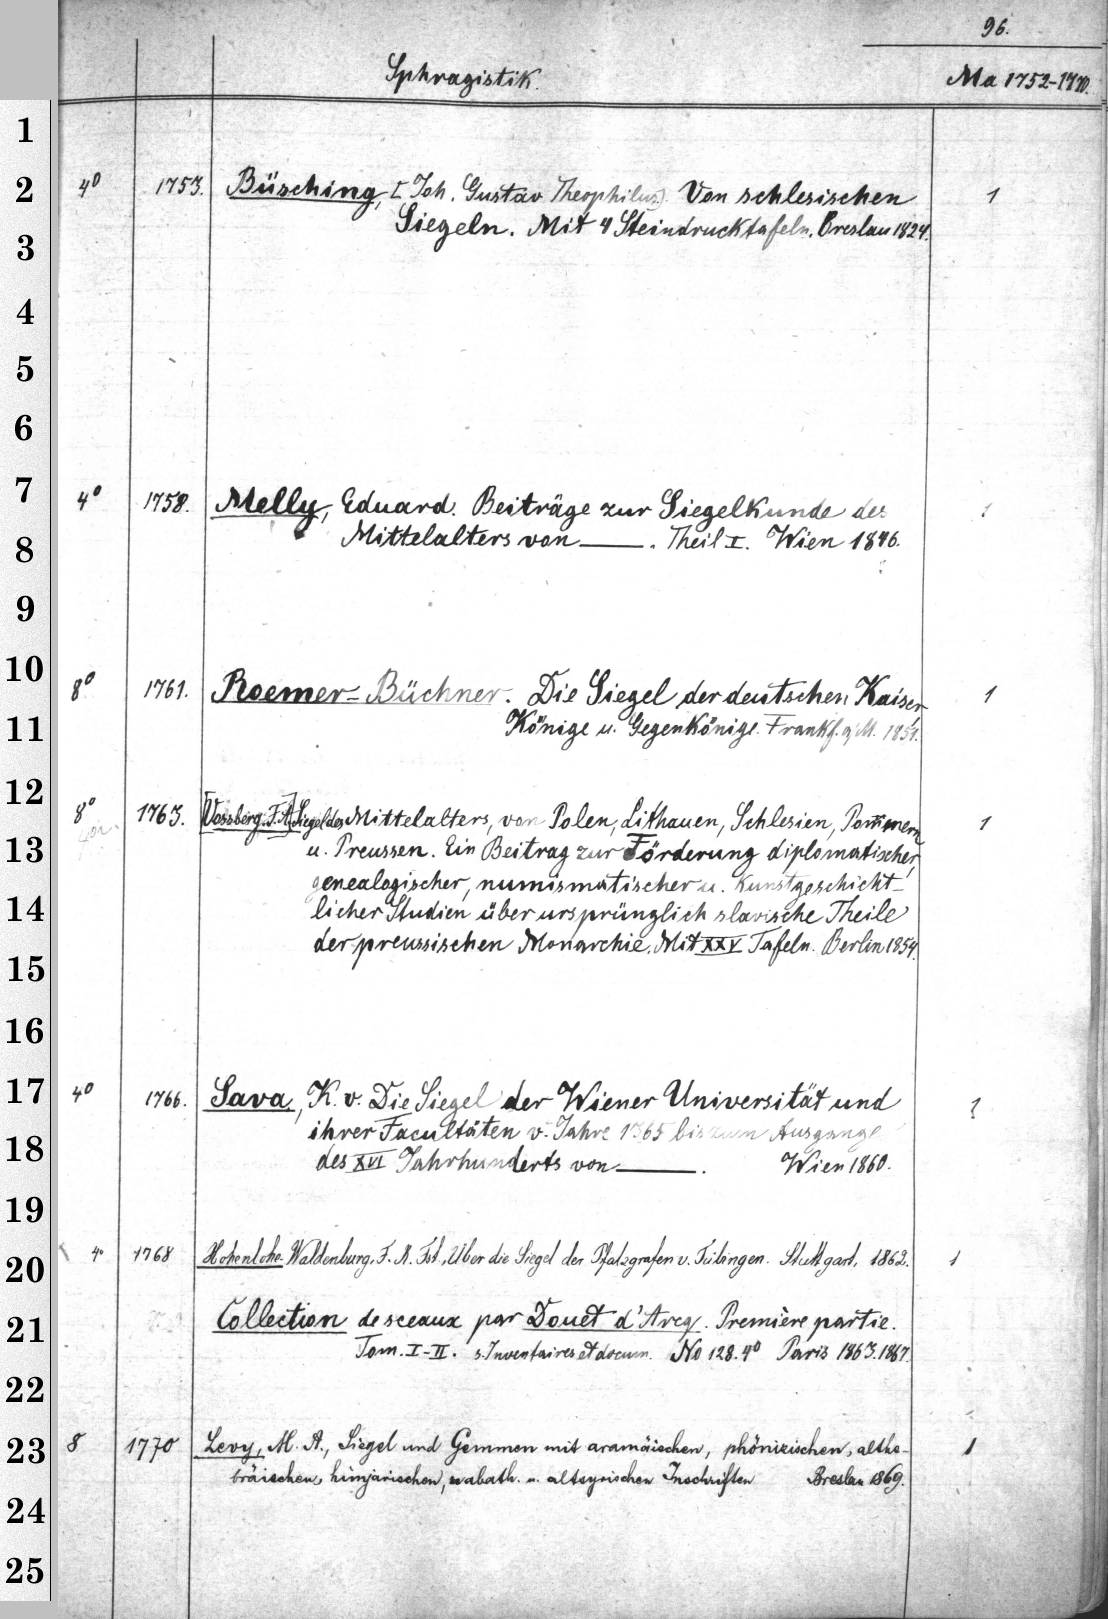 96.
Sphragistik.
Ma 1752-1770.
1
2
3
4
5
6
7
8
9
10
11
12
13
14
15
16
17
18
19
20
21
22
23
24
25
4° 1753. Büsching, [Joh. Gustav Theophilus]. Von schlesischen 1
Siegeln. Mit 4 Steindrucktafeln. Breslau 1824.
4° 1758. Melly, Eduard. Beiträge zur Siegelkunde des 1
Mittelalters von ——. Theil I. Wien 1846.
8° 1761. Roemer-Büchner. Die Siegel der deutschen Kaiser, 1
Könige u. Gegenkönige. Frankf. a/M. 1851.
8° 1763. [Vossberg, F. A.] Siegel des Mittelalters, von Polen, Lithauen, Schlesien, Pom̄mern 1
u. Preussen. Ein Beitrag zur Förderung diplomatischer,
genealogischer, numismatischer u. kunstgeschicht-
licher Studien über ursprünglich slavische Theile
der preussischen Monarchie. Mit XXV Tafeln. Berlin 1854.
4° 1766. Sava, K. v. Die Siegel der Wiener Universität und 1
ihrer Facultäten v. Jahre 1365 bis zum Ausgange
des XVI Jahrhunderts von ——. Wien 1860.
4° 1768 Hohenlohe-Waldenburg, F. K. Fst., Über die Siegel der Pfalzgrafen v. Tübingen. Stuttgart, 1862. 1
Collection de sceaux par Douët d'Arcq. Première partie.
Tom. I-II. s. Inventaires et docum. No 128. 4° Paris 1863.1867.
8 1770 Levy, M. A., Siegel und Gemmen mit aramäischen, phönizischen, althe- 1
bräischen, himjarischen, nabath. u. altsyrischen Inschriften Breslau 1869.